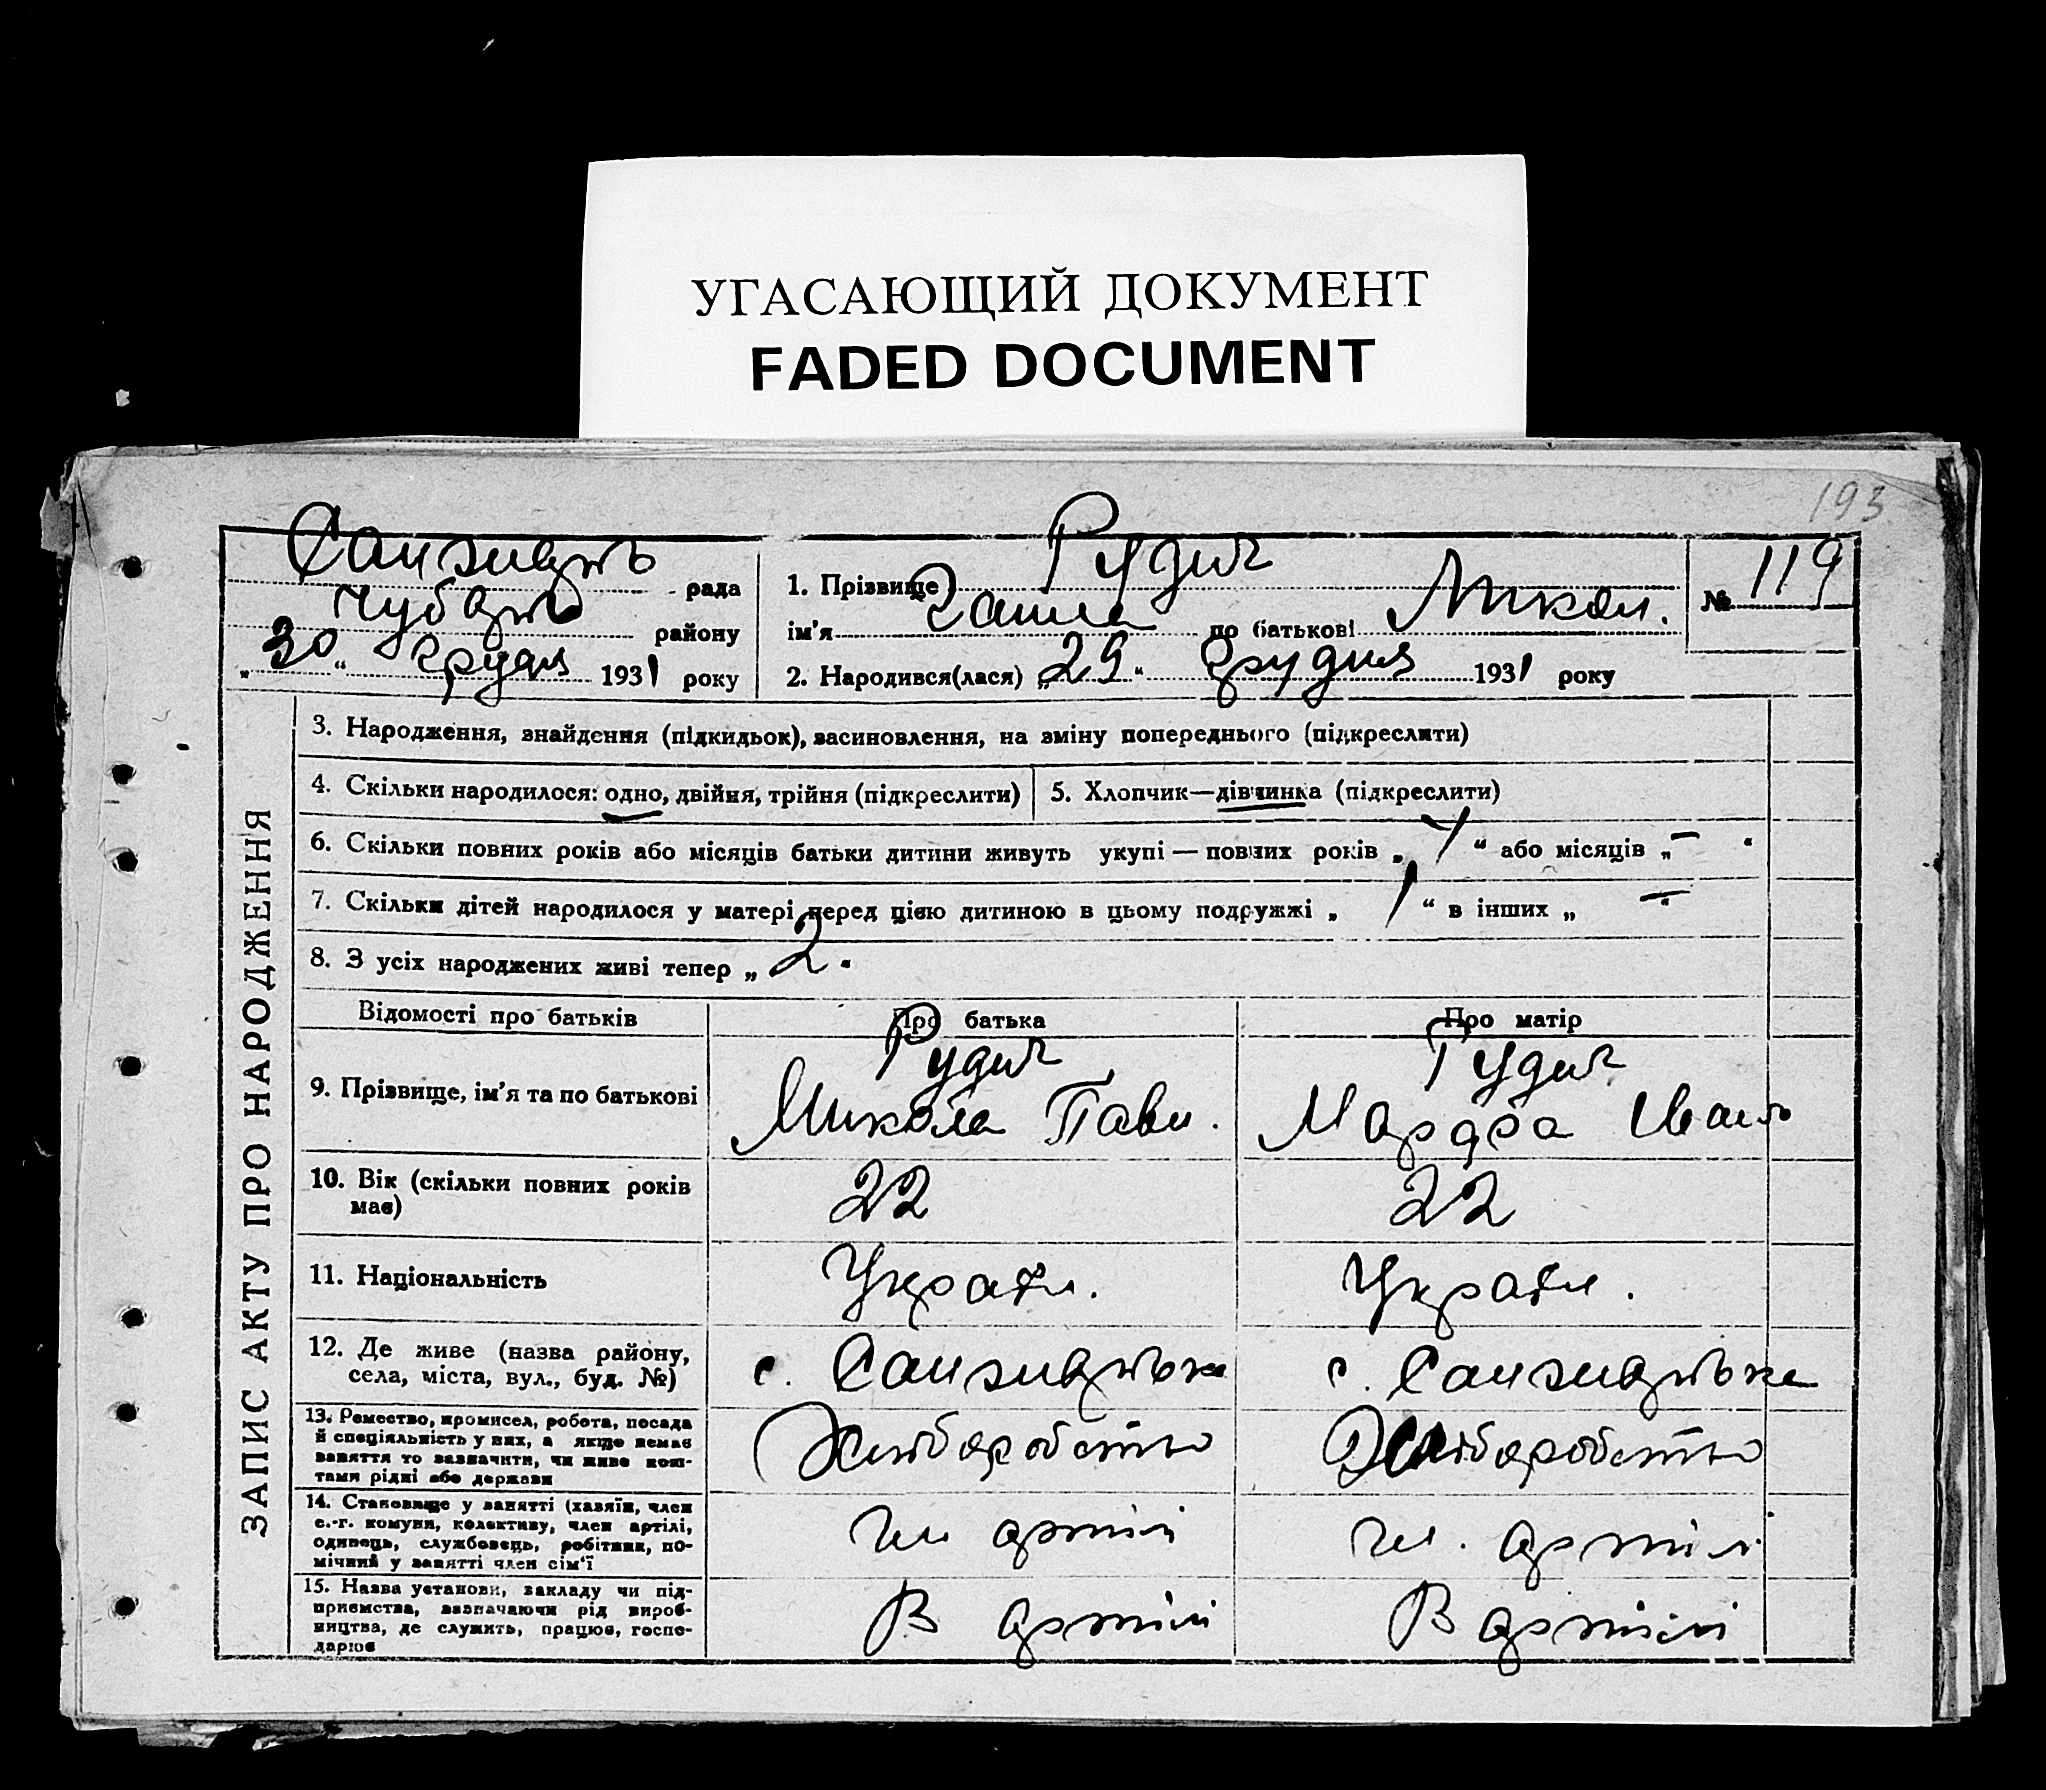 УГАСАЮЩИЙ ДОКУМЕНТ
FADED DOCUMENT
193
рада
Чубар району
„30“ грудня 1931 року
1. Прізвище Рудич
ім'я Ганна по батькові Микол.
2. Народився(лася) „29“ грудня 1931 року
№ 119
ЗАПИС АКТУ ПРО НАРОДЖЕННЯ
3. Народження, знайдення (підкидьок), засиновлення, на зміну попереднього (підкреслити)
4. Скільки народилося: одно, двійня, трійня (підкреслити)
5. Хлопчик—дівчинка (підкреслити)
6. Скільки повних років або місяців батьки дитини живуть укупі — повних років „ “ або місяців „—“
7. Скільки дітей народилося у матері перед цією дитиною в цьому подружжі „1“ в інших „—“
8. З усіх народжених живі тепер „2.
Відомості про батьків
Про батька
Про матір
9. Прізвище, ім'я та по батькові
Рудич
Микола Павл.
Рудич
Марфа Іван
10. Вік (скільки повних років
має)
22
22
11. Національність
Україн.
Україн.
12. Де живе (назва району,
села, міста, вул., буд. №)
с.
с.
13. Ремество, промисел, робота, посада
й спеціяльність у них, а якщо немає
заняття то зазначити, чи живе кош-
тами рідні або держави
Хліборобство
Хліборобство
14. Становище у занятті (хазяїн, член
с.-г. комуни, колективу, член артілі,
одинець, службовець, робітник, по-
мічний у занятті член сім'ї
чл артілі
чл. артілі
15. Назва установи, закладу чи під-
приємства, зазначаючи рід вироб-
ництва, де служить, працює, госпо-
дарює
В артілі
В артілі